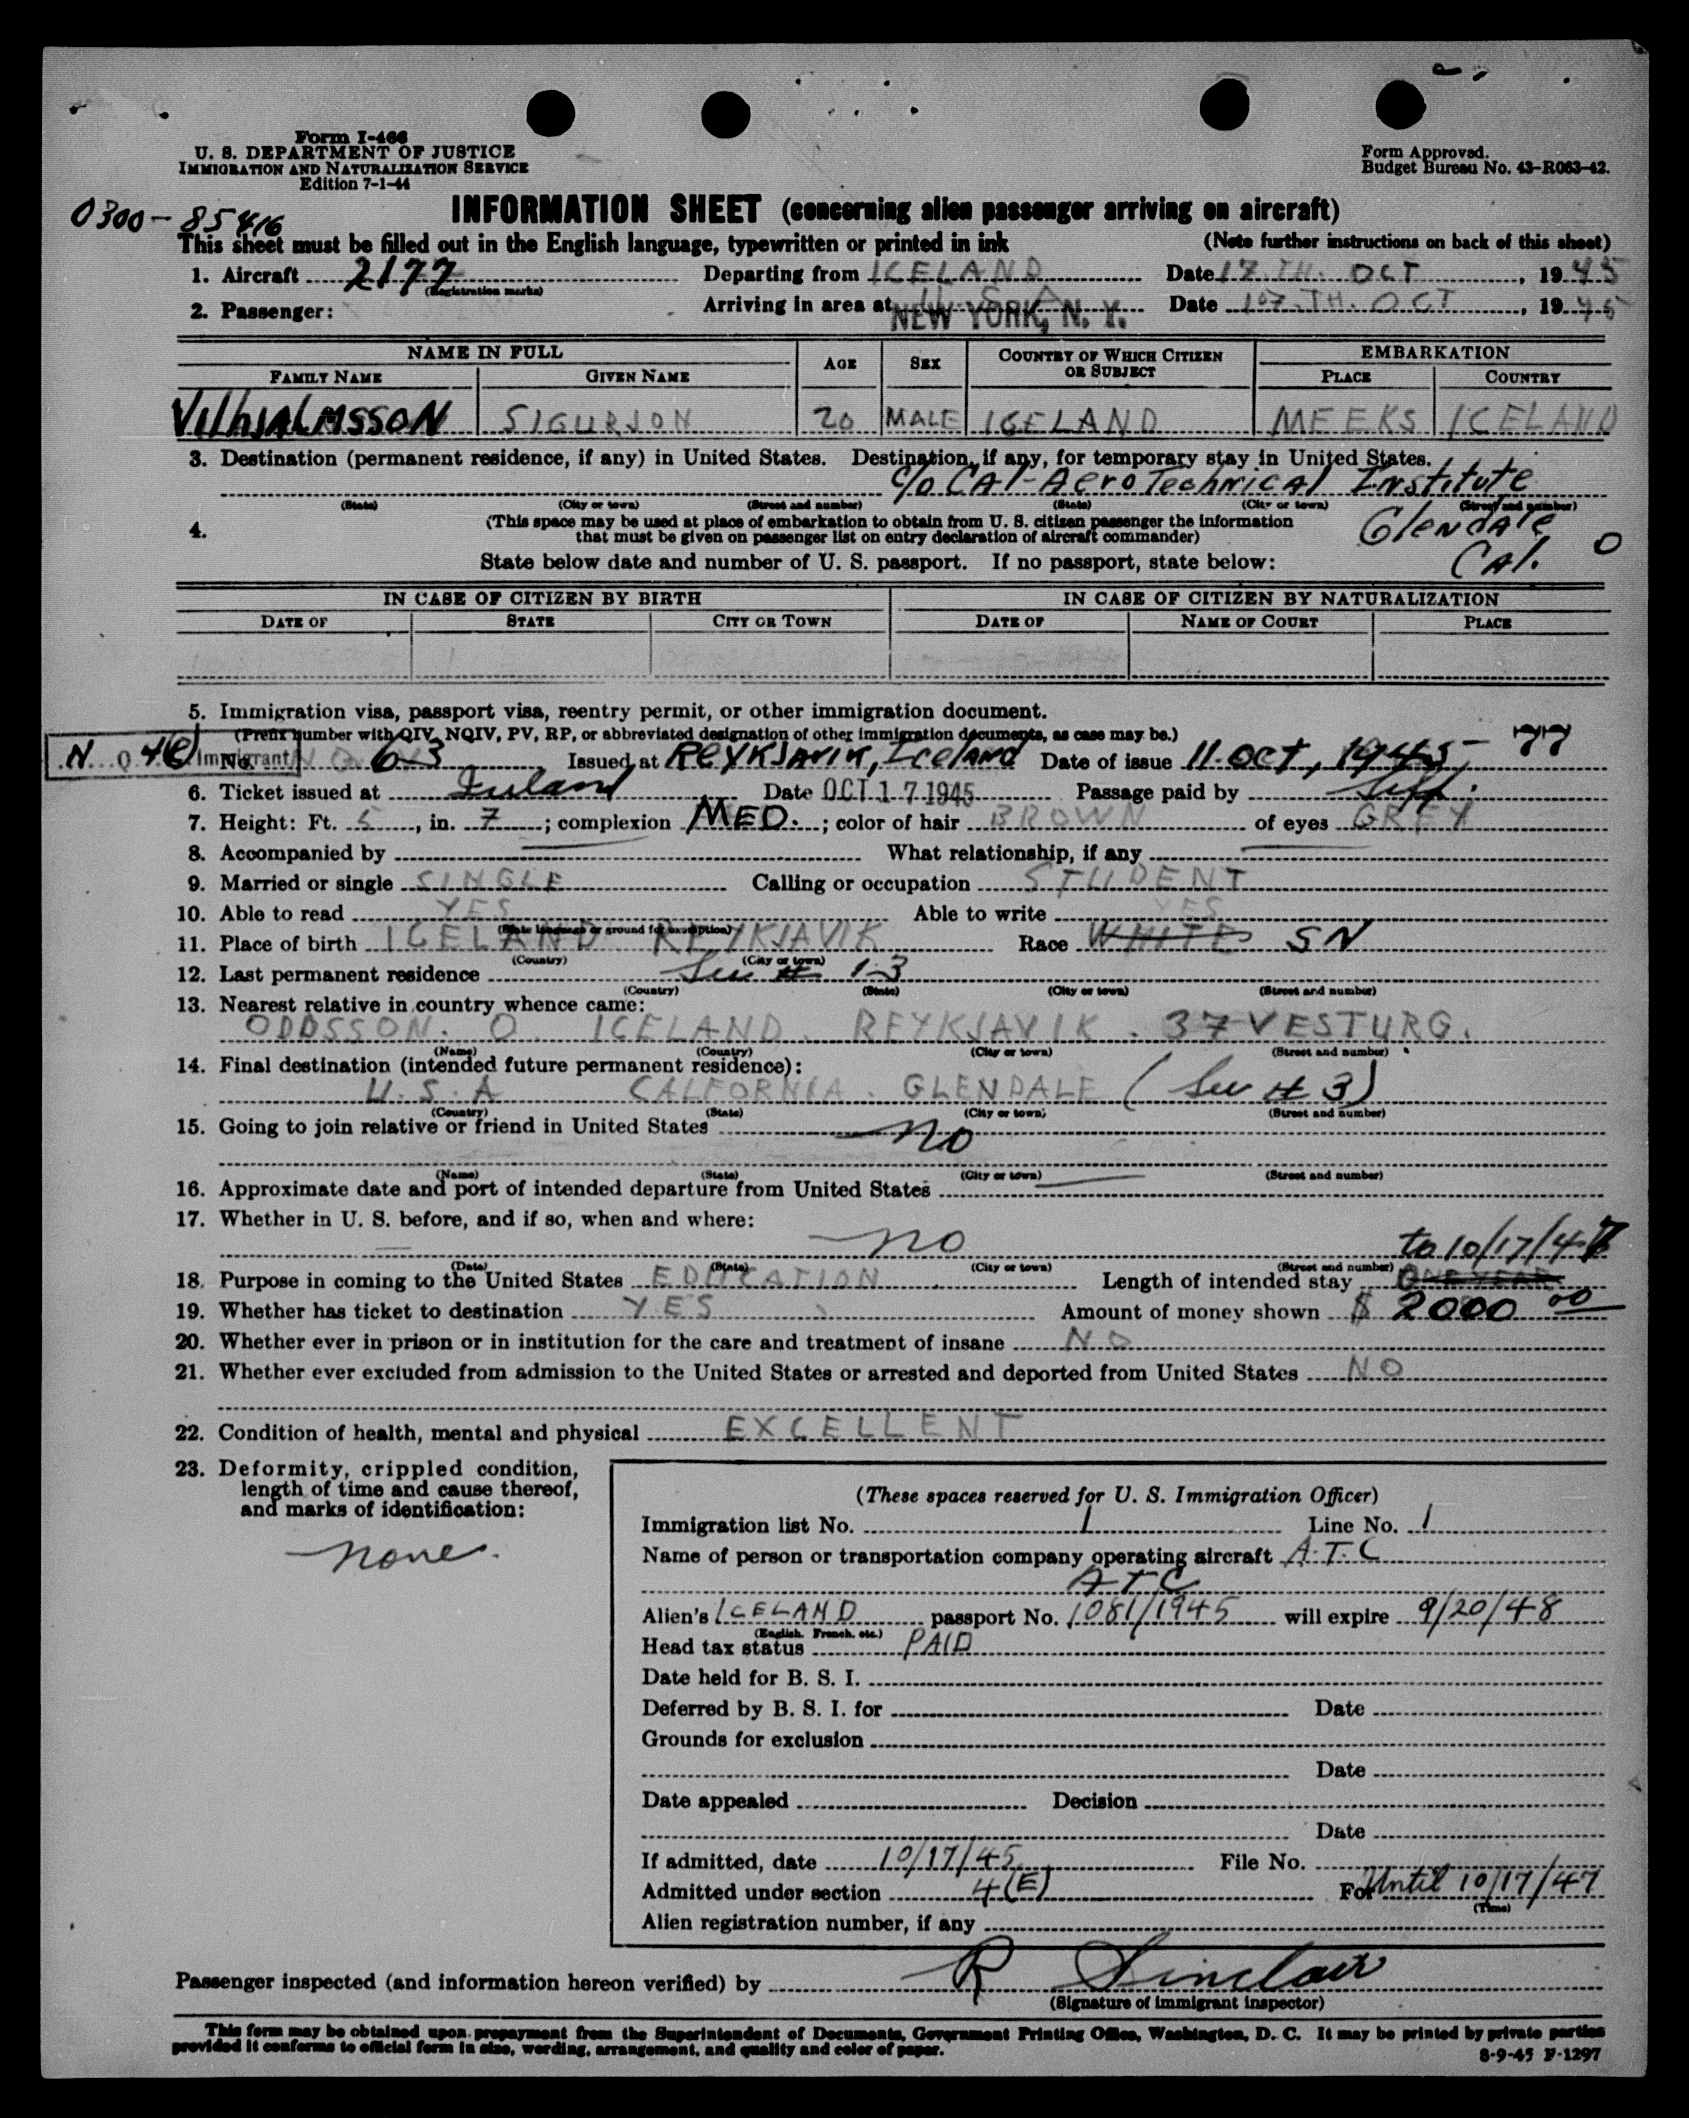 Form I-466
U. S. DEPARTMENT OF JUSTICE
IMMIGRATION AND NATURALIZATION SERVICE
Edition 7-1-44
Form Approved.
Budget Bureau No. 43-R063-42.
0300-85416
INFORMATION SHEET (concerning alien passenger arriving on aircraft)
This sheet must be filled out in the English language, typewritten or printed in ink (Note further instructions on back of this sheet)
1. Aircraft 2177 Departing from ICELAND Date 17 TH. OCT, 1945
(Registration marks)
2. Passenger: Arriving in area at NEW YORK, N. Y. Date 17 TH. OCT, 1945
NAME IN FULL AGE SEX COUNTRY OF WHICH CITIZEN OR SUBJECT EMBARKATION
FAMILY NAME GIVEN NAME PLACE COUNTRY
VilhJALMSSON SIGURJON 20 MALE ICELAND MEEKS ICELAND
3. Destination (permanent residence, if any) in United States. Destination, if any, for temporary stay in United States.
c/o CAl-Aero Technical Institute
(State) (City or town) (Street and number) (State) (City or town) (Street and number)
Glendale Cal. O
4. (This space may be used at place of embarkation to obtain from U. S. citizen passenger the information
that must be given on passenger list on entry declaration of aircraft commander)
State below date and number of U. S. passport. If no passport, state below:
IN CASE OF CITIZEN BY BIRTH IN CASE OF CITIZEN BY NATURALIZATION
DATE OF STATE CITY OR TOWN DATE OF NAME OF COURT PLACE
5. Immigration visa, passport visa, reentry permit, or other immigration document.
(Prefix number with QIV, NQIV, PV, RP, or abbreviated designation of other immigration documents, as case may be.)
N. Q 4(e) Immigrant No. 63 Issued at Reykjavik, Iceland Date of issue 11 Oct, 1945 - 77
6. Ticket issued at Iceland Date OCT 17 1945 Passage paid by Self.
7. Height: Ft. 5, in. 7; complexion MED.; color of hair BROWN of eyes GREY
8. Accompanied by — What relationship, if any —
9. Married or single SINGLE Calling or occupation STUDENT
10. Able to read YES Able to write YES
(State language or ground for exemption)
11. Place of birth ICELAND REYKJAVIK Race WHITE SN
(Country) (City or town)
12. Last permanent residence See # 13
(Country) (State) (City or town) (Street and number)
13. Nearest relative in country whence came:
ODDSSON. O ICELAND. REYKJAVIK. 37 VESTURG.
(Name) (Country) (City or town) (Street and number)
14. Final destination (intended future permanent residence):
U.S.A CALFORNIA. GLENDALE (See # 3)
(Country) (State) (City or town) (Street and number)
15. Going to join relative or friend in United States No
(Name) (State) (City or town) (Street and number)
16. Approximate date and port of intended departure from United States —
17. Whether in U. S. before, and if so, when and where:
No to 10/17/47
(Date) (State) (City or town) (Street and number)
18. Purpose in coming to the United States EDUCATION Length of intended stay ONE YEAR
19. Whether has ticket to destination YES Amount of money shown $ 2000 00
20. Whether ever in prison or in institution for the care and treatment of insane NO
21. Whether ever excluded from admission to the United States or arrested and deported from United States NO
22. Condition of health, mental and physical EXCELLENT
23. Deformity, crippled condition,
length of time and cause thereof,
and marks of identification:
None.
(These spaces reserved for U. S. Immigration Officer)
Immigration list No. 1 Line No. 1
Name of person or transportation company operating aircraft A.T.C
ATC
Alien's ICELAND passport No. 1081/1945 will expire 9/20/48
(English, French, etc.)
Head tax status PAID
Date held for B. S. I.
Deferred by B. S. I. for Date
Grounds for exclusion
Date
Date appealed Decision
Date
If admitted, date 10/17/45 File No.
Admitted under section 4(E) For Until 10/17/47
(Time)
Alien registration number, if any
Passenger inspected (and information hereon verified) by R Sinclair
(Signature of immigrant inspector)
This form may be obtained upon prepayment from the Superintendent of Documents, Government Printing Office, Washington, D. C. It may be printed by private parties
provided it conforms to official form in size, wording, arrangement, and quality and color of paper.
8-9-45 F-1297